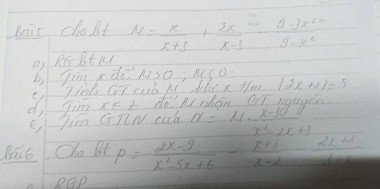 Bài 5 Cho bt M = x/x+3 + 2x/x-3 - 9-3x²/9-x²
a, RG bt M
b, Tìm x để M>0, M≤0
c, Tính GT của M khi x t/m |2x+1| = 5
d, Tìm x∈Z để M nhận GT nguyên
e, Tìm GTLN của N = M. x-3/x²-2x+3
Bài 6 Cho bt P = 2x-9/x²-5x+6 - x+3/x-2
a RGP